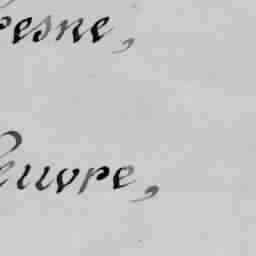 resne,
euvre,